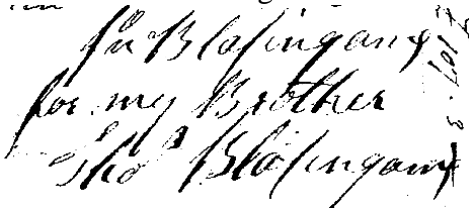 Jn Blasingame
for my Brother
Thos Blasingame